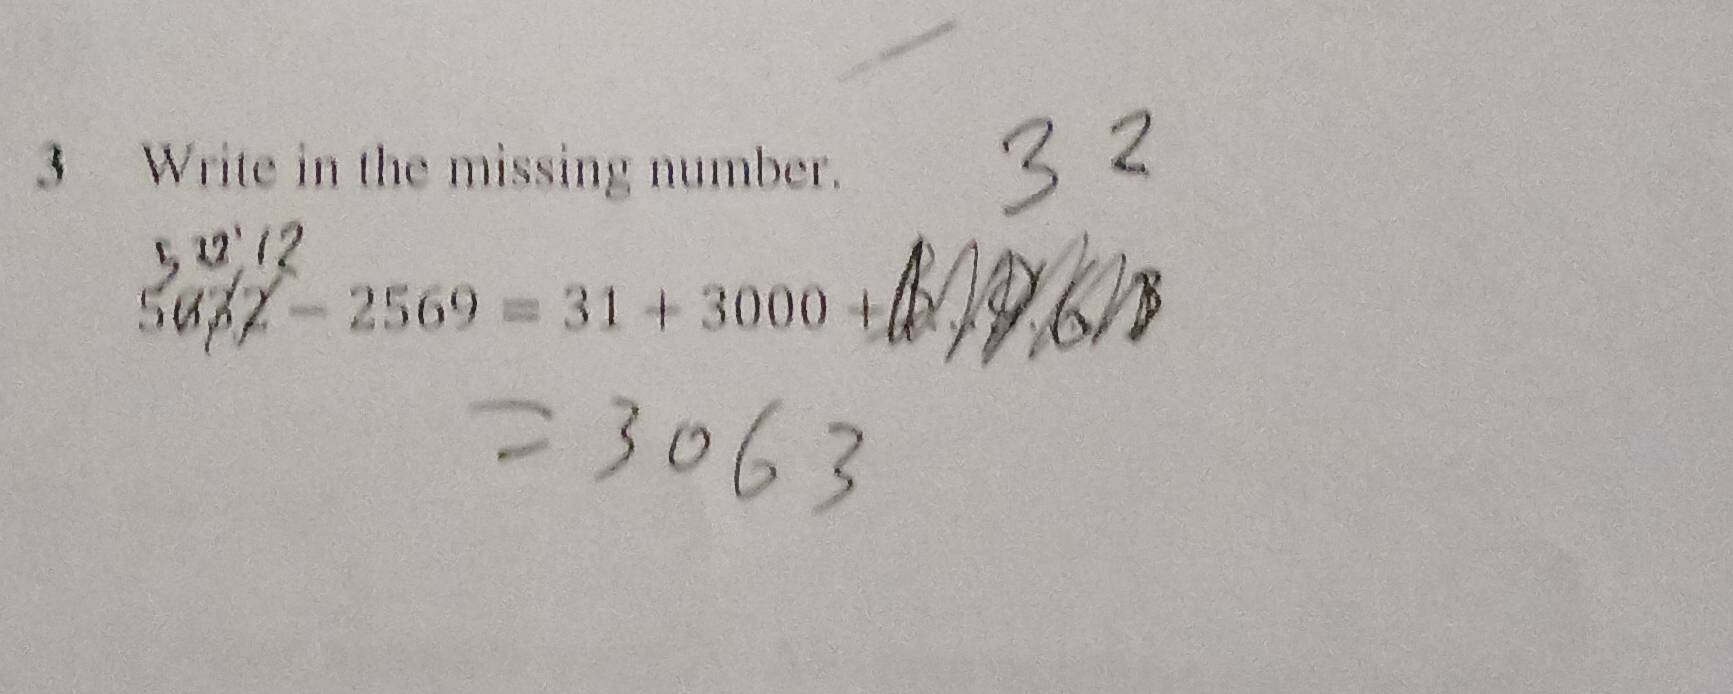 3 Write in the missing number.
32
5 12 12
5632 - 2569 = 31 + 3000 +
= 3063